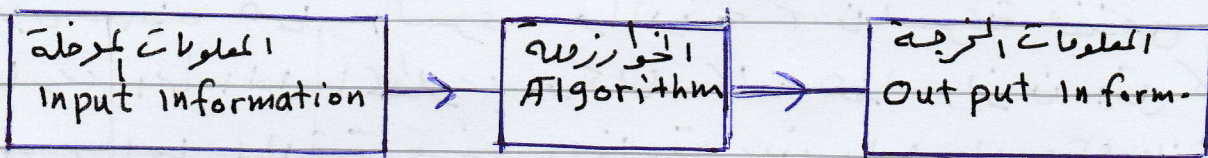 المعلومات المدخلة
Input Information
الخوارزمية
Algorithm
المعلومات المخرجة
Output Inform.